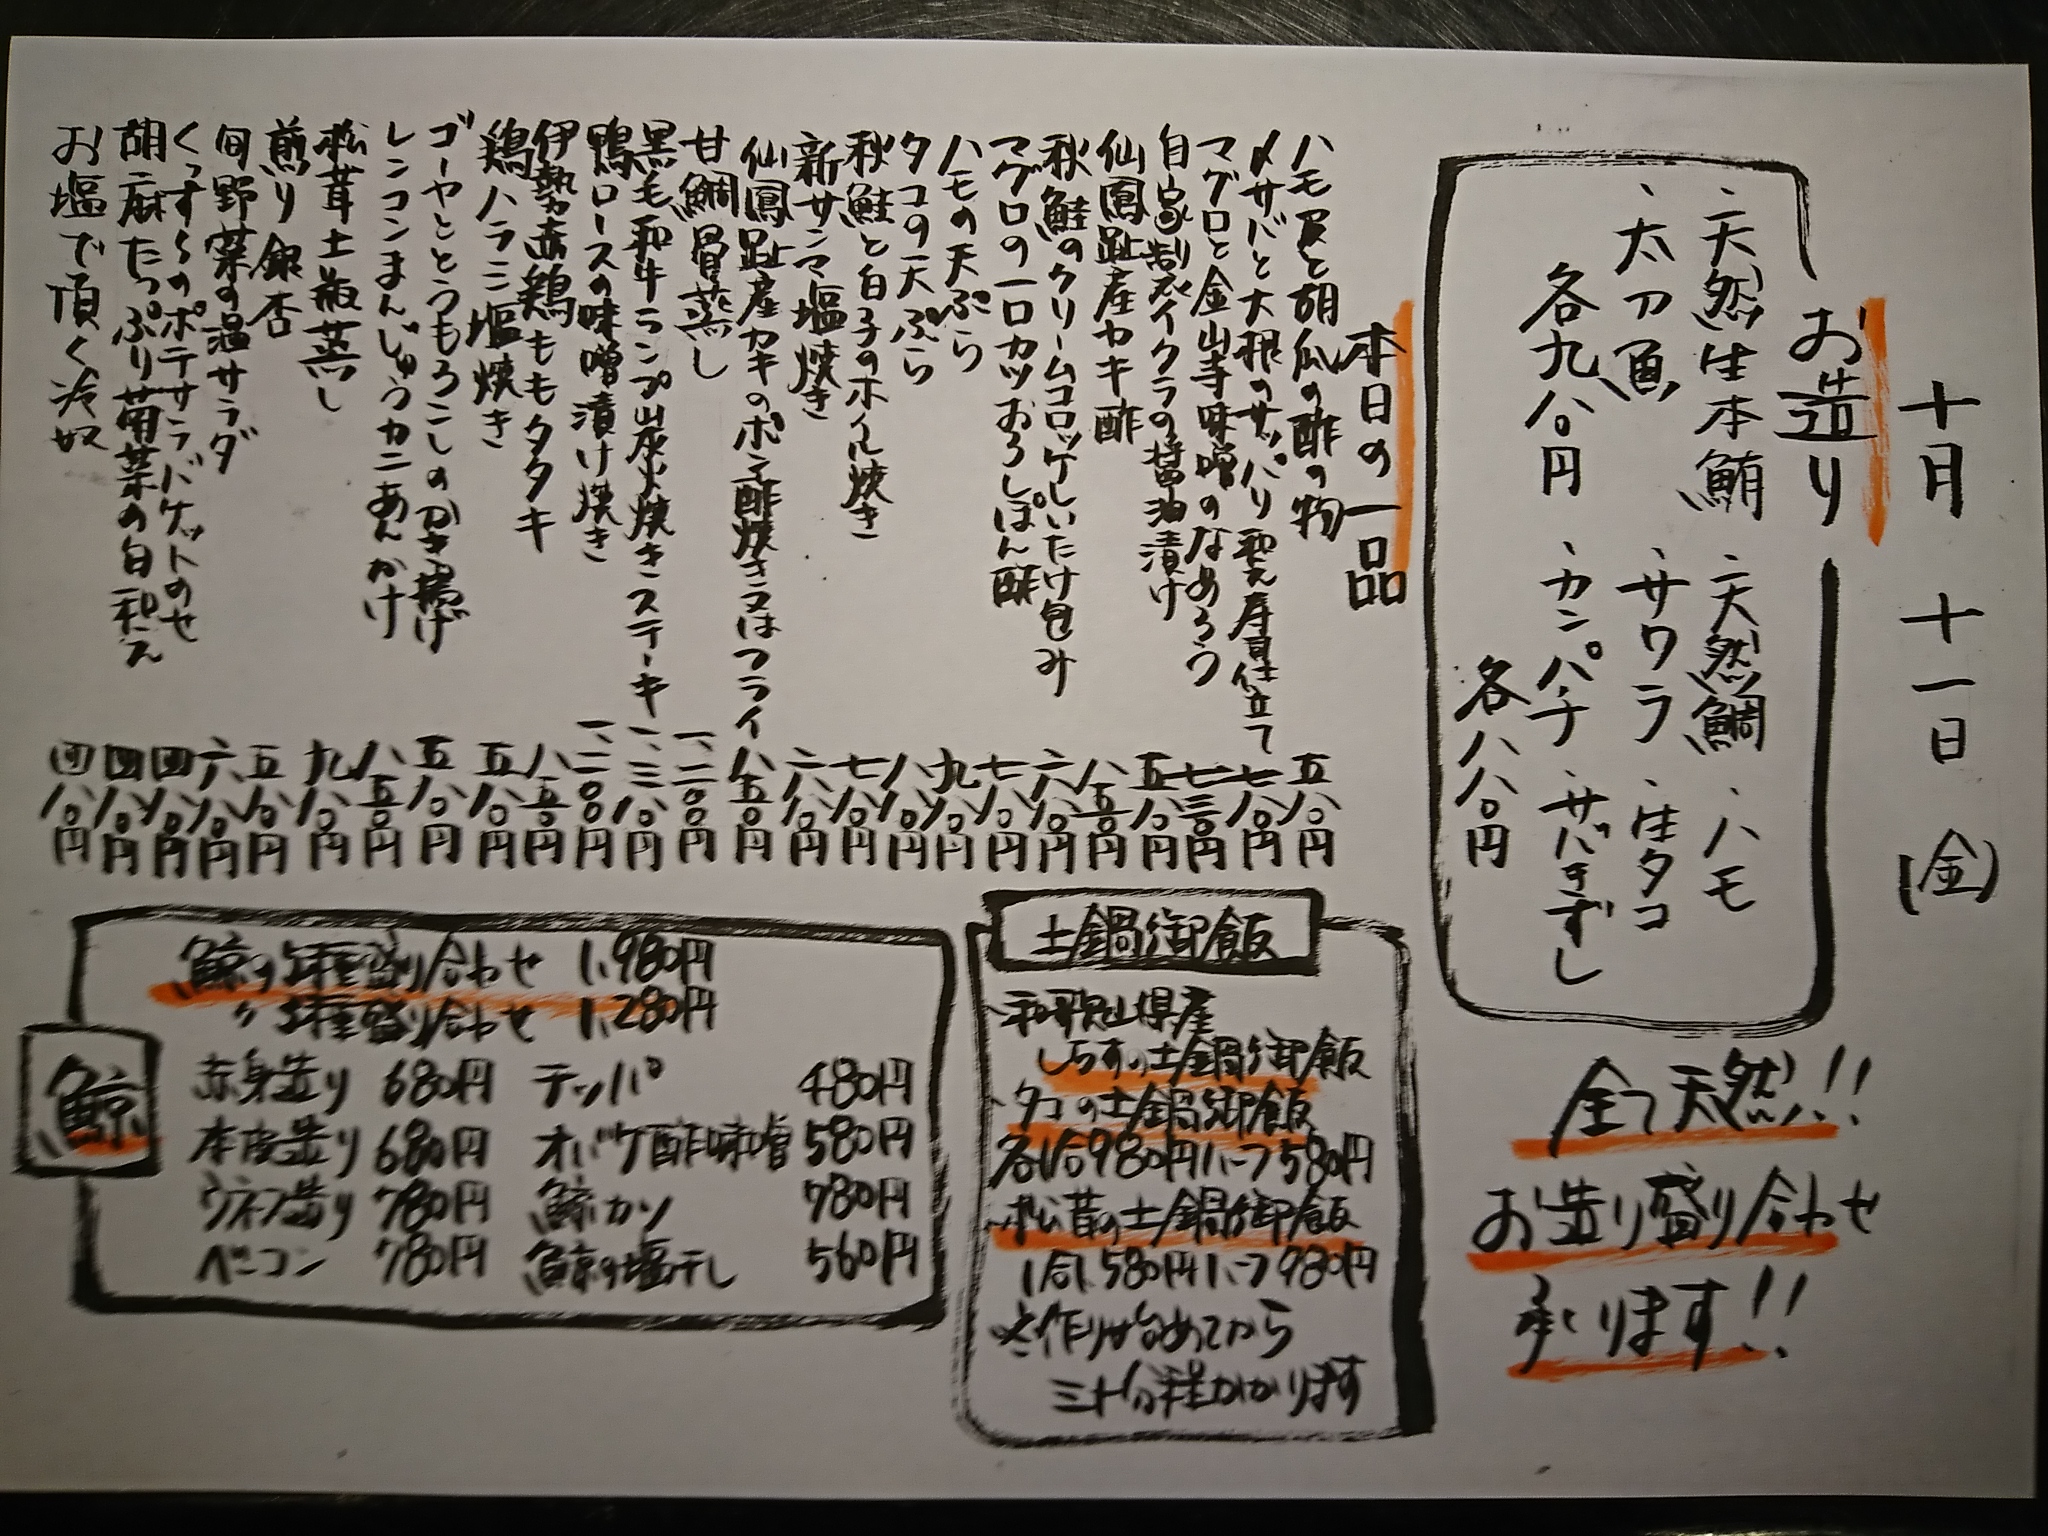 十月 十一日 (金)
お造り
、天然生本鮪 、天然鯛 、ハモ
、太刀魚 、サワラ 、生タコ
各九八〇円 、カンパチ 、サバきずし
各八八〇円
全て天然!!
お造り盛り合わせ
承ります!!
本日の一品
ハモ皮と胡瓜の酢の物 五八〇円
〆サバと大根のサッパリ和え寿司仕立て 七八〇円
マグロと金山寺味噌のなめろう 七三〇円
自家製イクラの醤油漬け 五八〇円
仙鳳趾産カキ酢 八五〇円
秋鮭のクリームコロッケしいたけ包み 六八〇円
マグロの一口カツおろしぽん酢 七八〇円
ハモの天ぷら 九八〇円
タコの天ぷら 八八〇円
秋鮭と白子のホイル焼き 七八〇円
新サンマ塩焼き 六八〇円
仙鳳趾産カキのポン酢焼き又はフライ 八五〇円
甘鯛骨蒸し 一、二〇〇円
黒毛和牛ランプ炭火焼きステーキ 一、三八〇円
鴨ロースの味噌漬け焼き 一、二〇〇円
伊勢赤鶏ももタタキ 八五〇円
鶏ハラミ塩焼き 五八〇円
ゴーヤととうもろこしのかき揚げ 五八〇円
レンコンまんじゅうカニあんかけ 八五〇円
松茸土瓶蒸し 九八〇円
煎り銀杏 五八〇円
旬野菜の温サラダ 六八〇円
くっすくのポテサラバケットのせ 四八〇円
胡麻たっぷり菊菜の白和え 四八〇円
お塩で頂く冷奴 四八〇円
土鍋御飯
、和歌山県産
しらすの土鍋御飯
、タコの土鍋御飯
各1合980円ハーフ580円
、松茸の土鍋御飯
1合1,580円ハーフ980円
※作り始めてから
三十分程かかります
鯨
鯨の5種盛り合わせ 1,980円
〃 3種盛り合わせ 1,280円
赤身造り 680円 テッパ 480円
本皮造り 680円 オバケ酢味噌 580円
ウネス造り 780円 鯨カツ 780円
ベーコン 780円 鯨の塩干し 560円